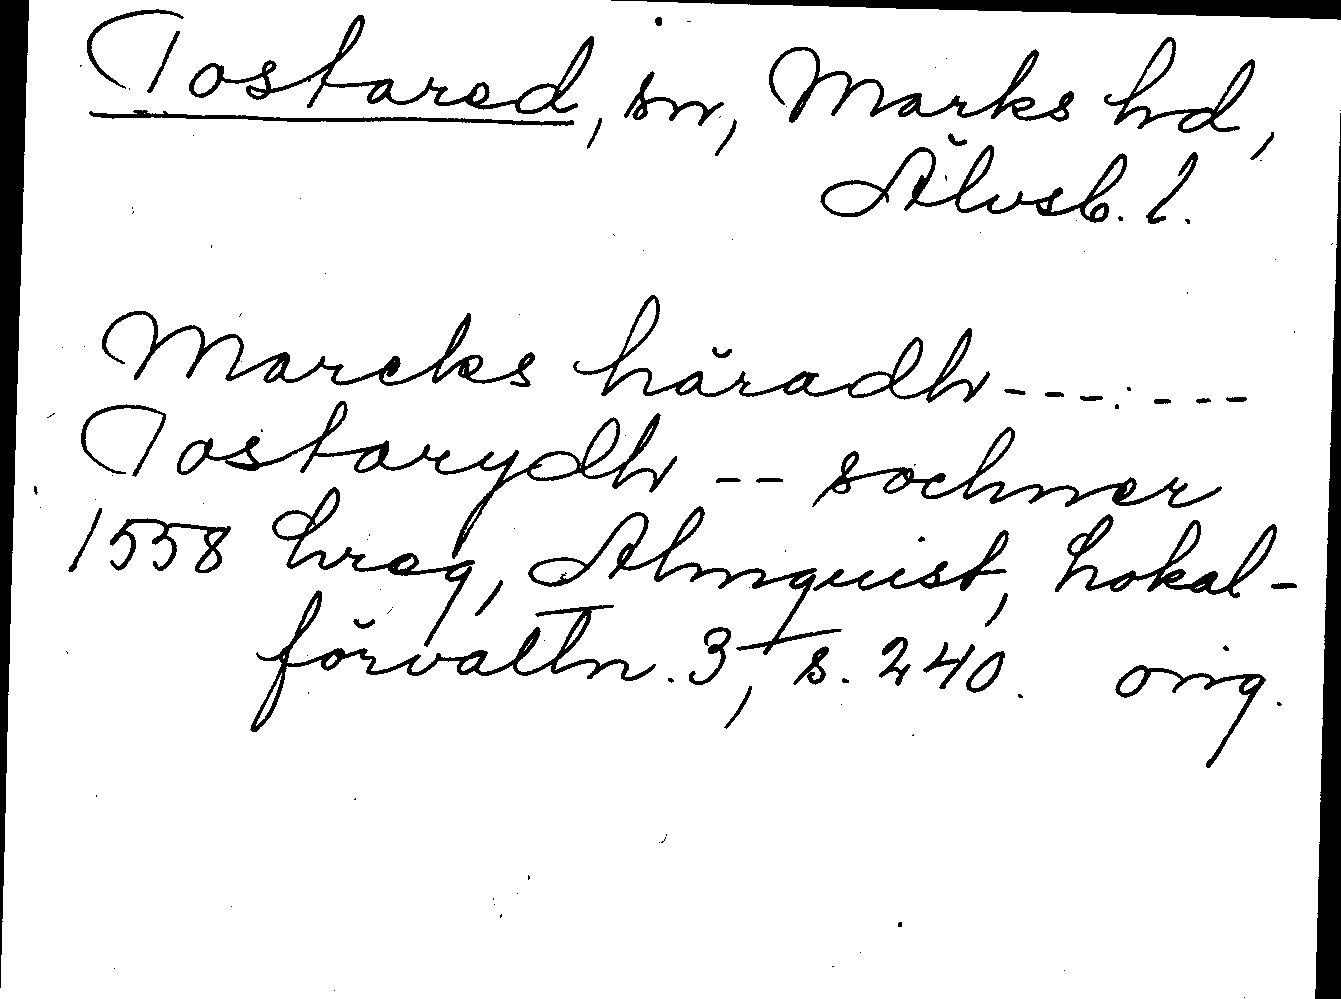 Tostared, sn, Marks hd,
Älvsb. l.
Marcks häradh - - - - - - -
Tostarydh - - sochner
1558 hreg, Almquist, Lokal-
förvaltn. 3, s. 240. orig.